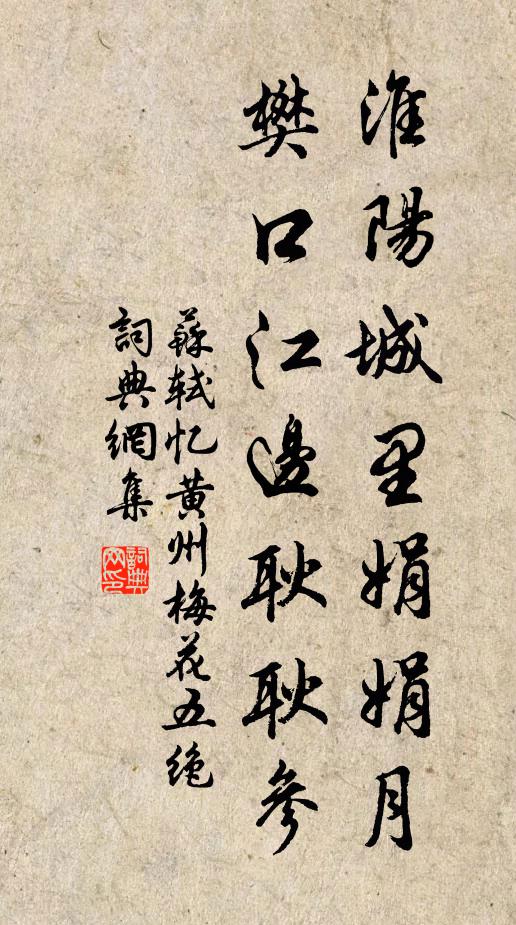 淮陽城里娟娟月
樊口江邊耿耿參
蘇軾忆黄州梅花五绝
詞典網集
詞典网印